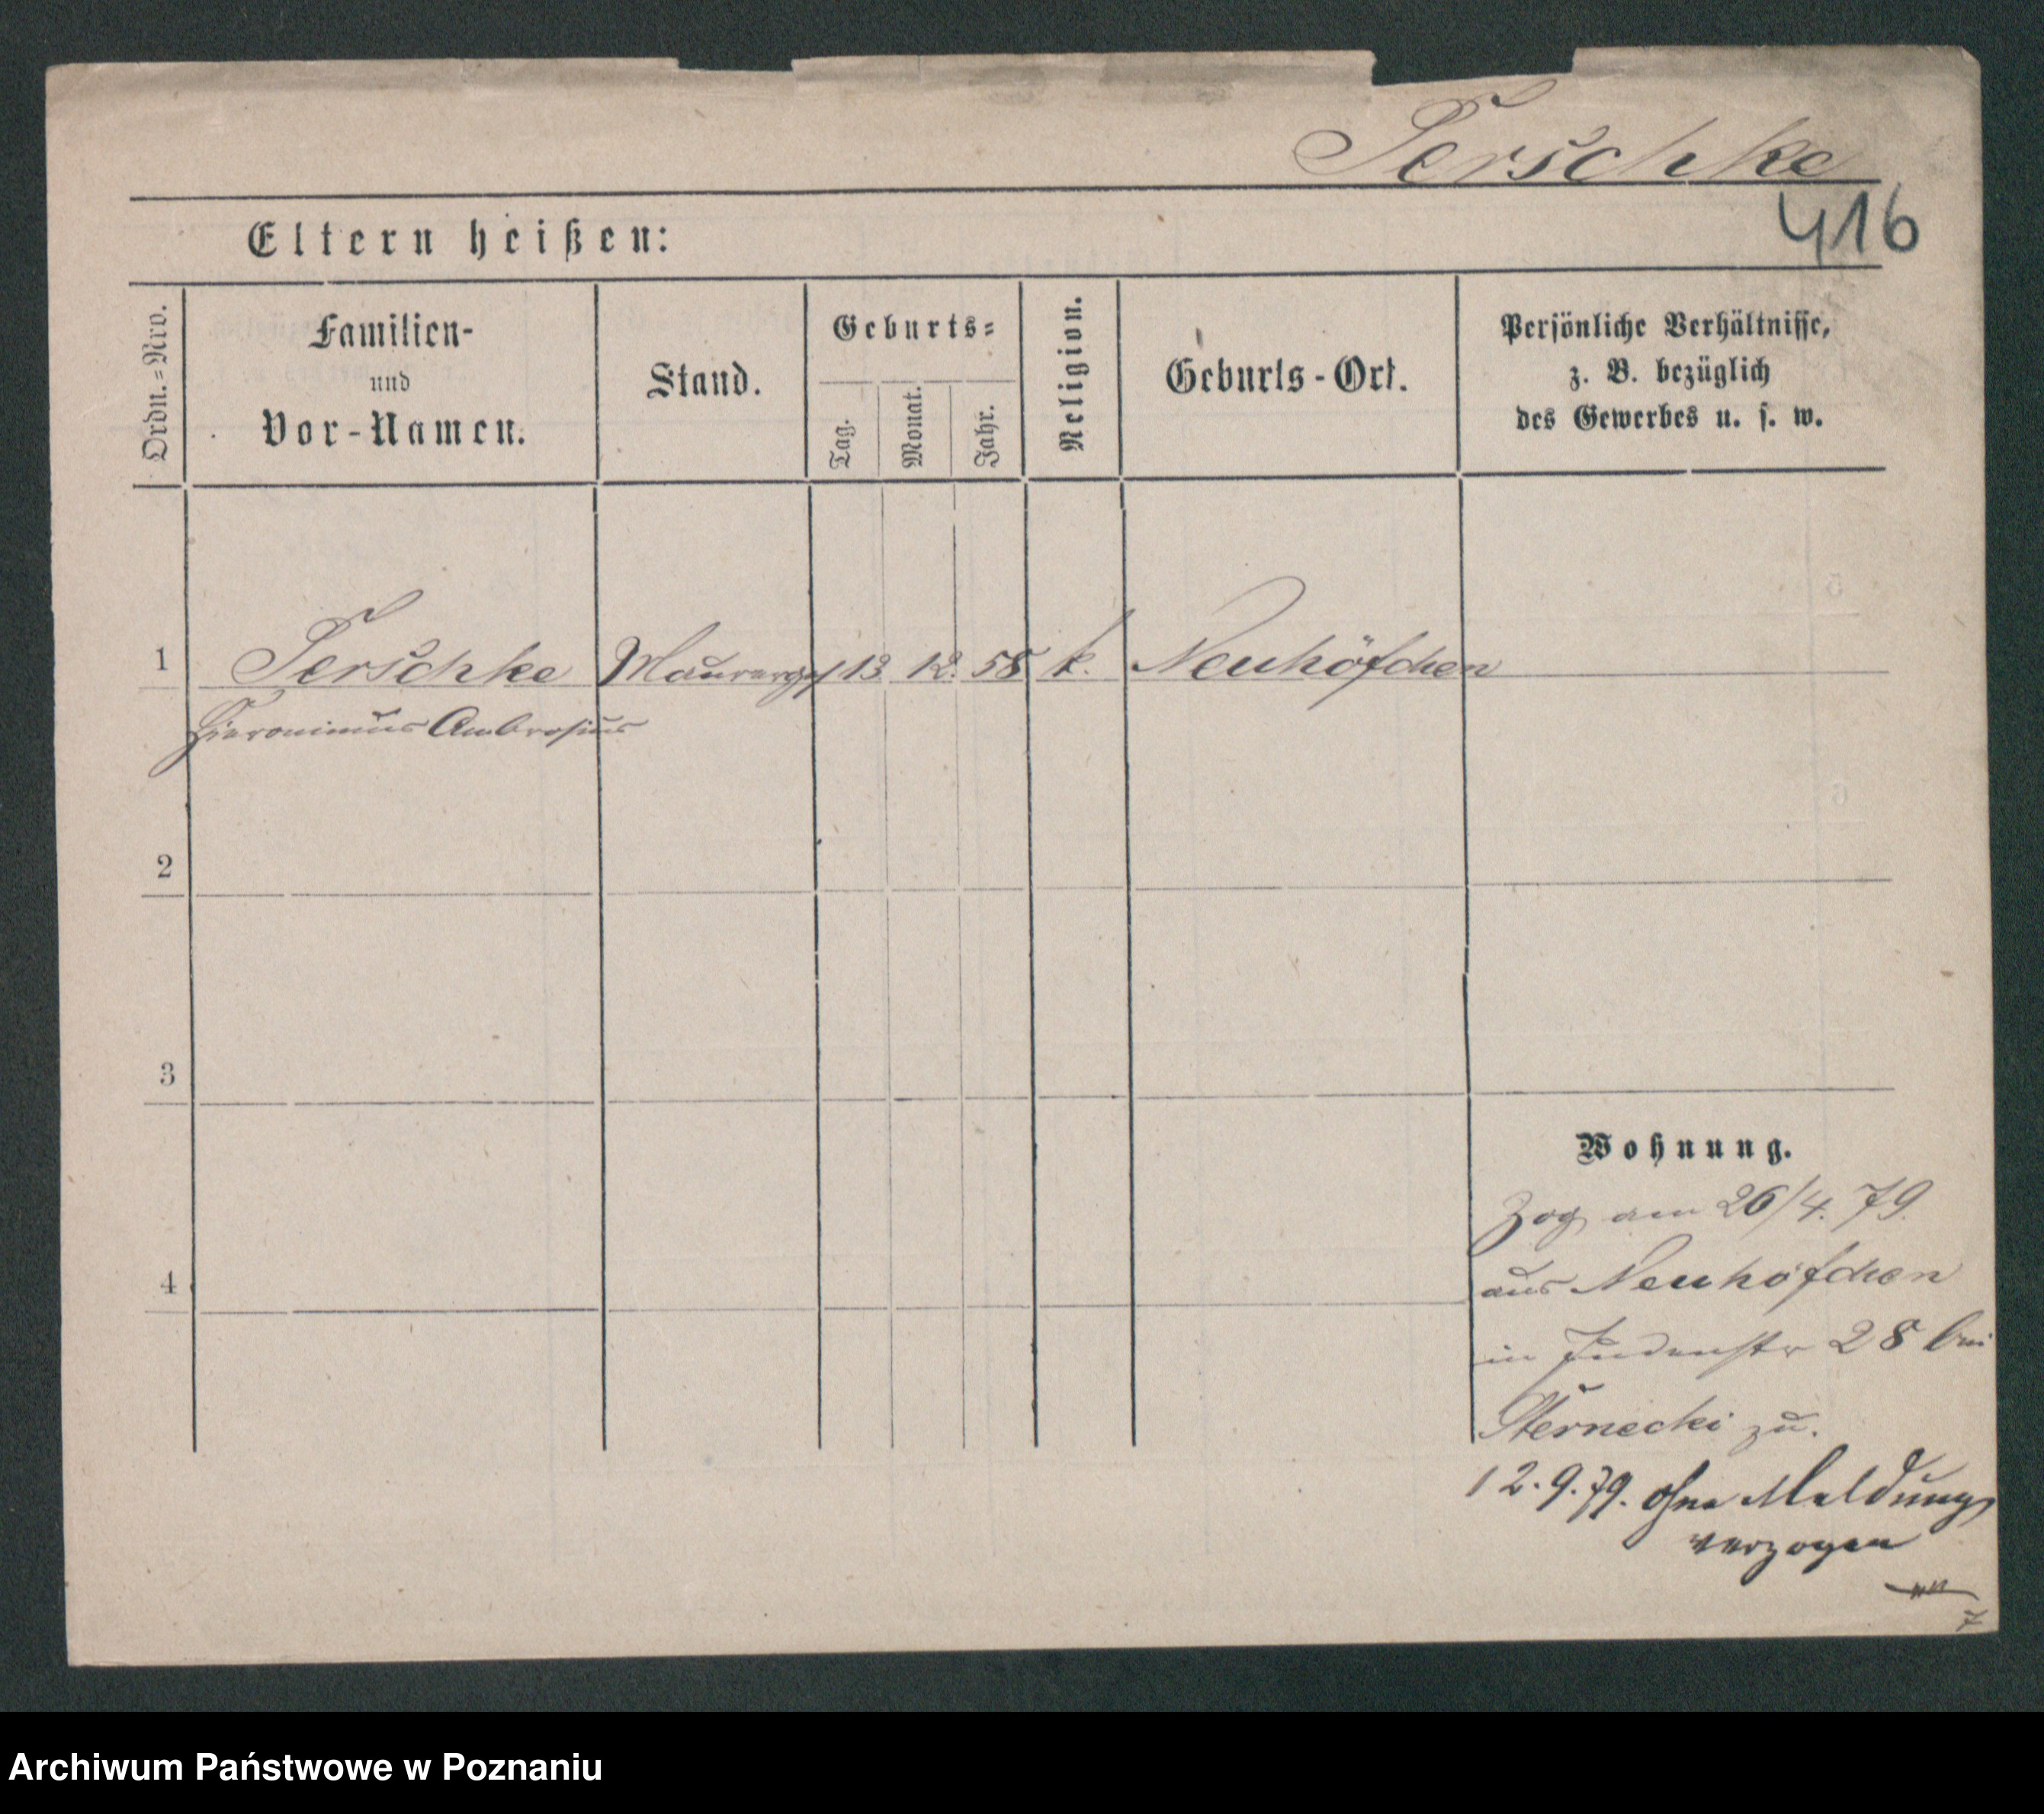 Terschke
416
Eltern heißen:
Ordn.=Nro.
Familien-
und
Vor-Namen.
Stand.
Geburts=
Tag.
Monat.
Jahr.
Religion.
Geburts-Ort.
Persönliche Verhältnisse,
z. B. bezüglich
des Gewerbes u. s. w.
1 Terschke Maurerges 13 12. 58 k. Neuhöfchen
Hieronimus Ambrosius
2
3
Wohnung.
Zog am 26/4. 79.
4
aus Neuhöfchen
in Judenstr 28 bei
Sternecki zu.
12.9.79. ohne Meldung
verzogen
Archiwum Państwowe w Poznaniu